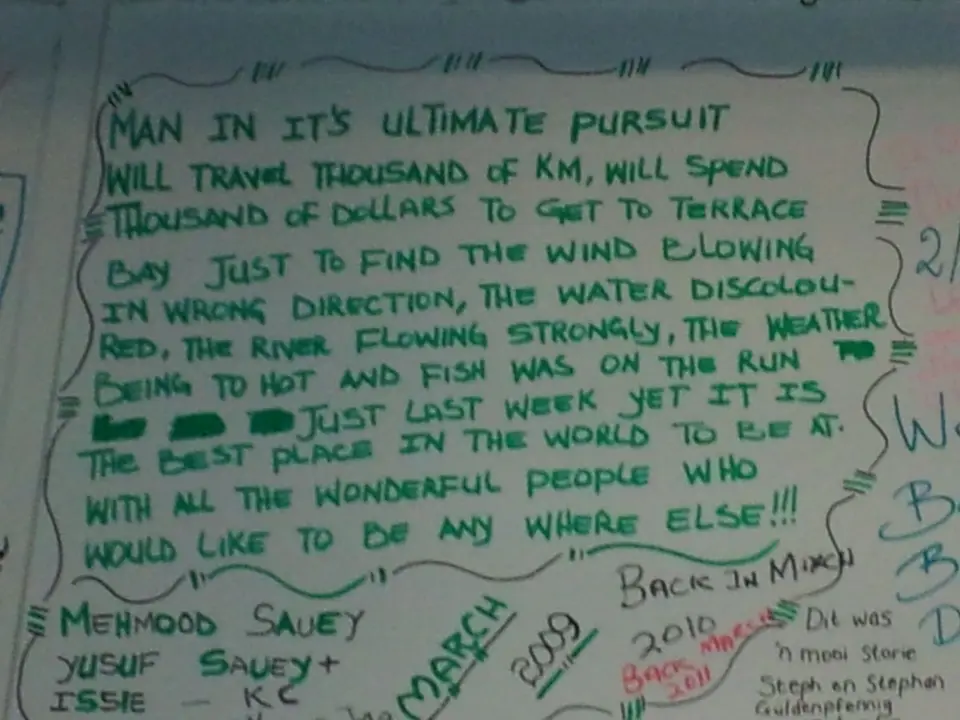 MAN IN IT'S ULTIMATE PURSUIT
WILL TRAVEL THOUSAND OF KM, WILL SPEND
THOUSAND OF DOLLARS TO GET TO TERRACE
BAY JUST TO FIND THE WIND BLOWING
IN WRONG DIRECTION, THE WATER DISCOLOU-
RED, THE RIVER FLOWING STRONGLY, THE WEATHER
BEING TO HOT AND FISH WAS ON THE RUN
JUST LAST WEEK YET IT IS
THE BEST PLACE IN THE WORLD TO BE AT.
WITH ALL THE WONDERFUL PEOPLE WHO
WOULD LIKE TO BE ANY WHERE ELSE!!!
MEHMOOD SAUEY
YUSUF SAUEY+
ISSIE - KC
MARCH
2009
BACK IN MARCH
2010
BACK MARCH
2011
Dit was
'n mooi storie
Steph en Stephan
Guldenpfennig
2/